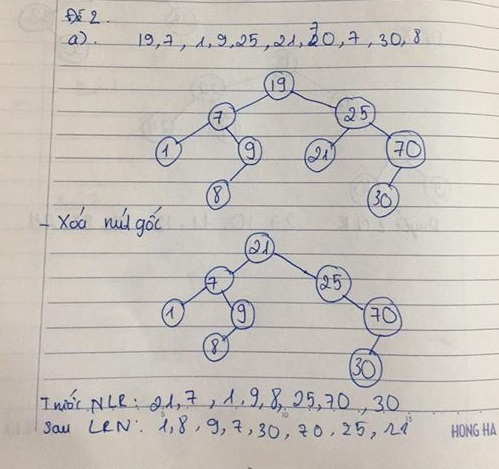 Đề 2.
a). 19,7, 1,9,25, 21, 70, 7, 30, 8
19
7 25
1 9 21 70
8 30
- Xoá nút gốc
21
7 25
1 9 70
8 30
Trước NLR: 21,7, 1,9,8, 25,70, 30
Sau LRN: 1,8, 9,7, 30, 70, 25, 21
HONG HA